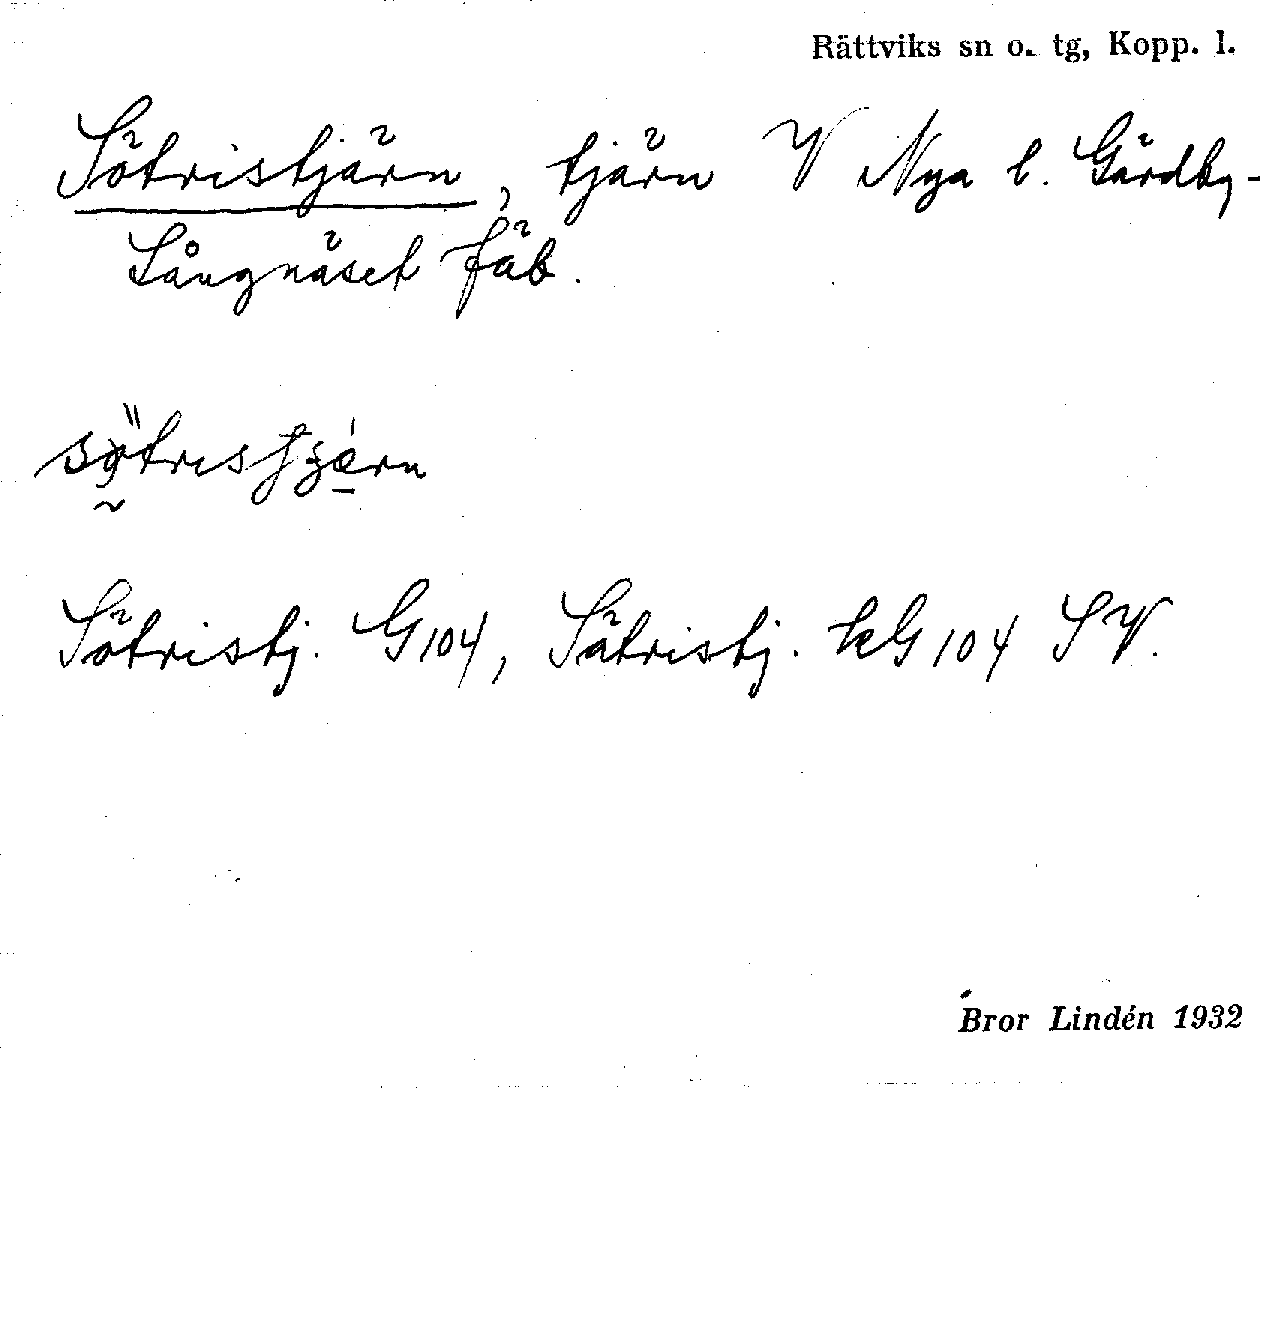 Rättviks sn o. tg, Kopp. l.
Sötristjärn, tjärn V Nya l. Gärdby-
Långnäset fäb.
Sötristj. G104, Sätristj. kG104 SV.
Bror Lindén 1932